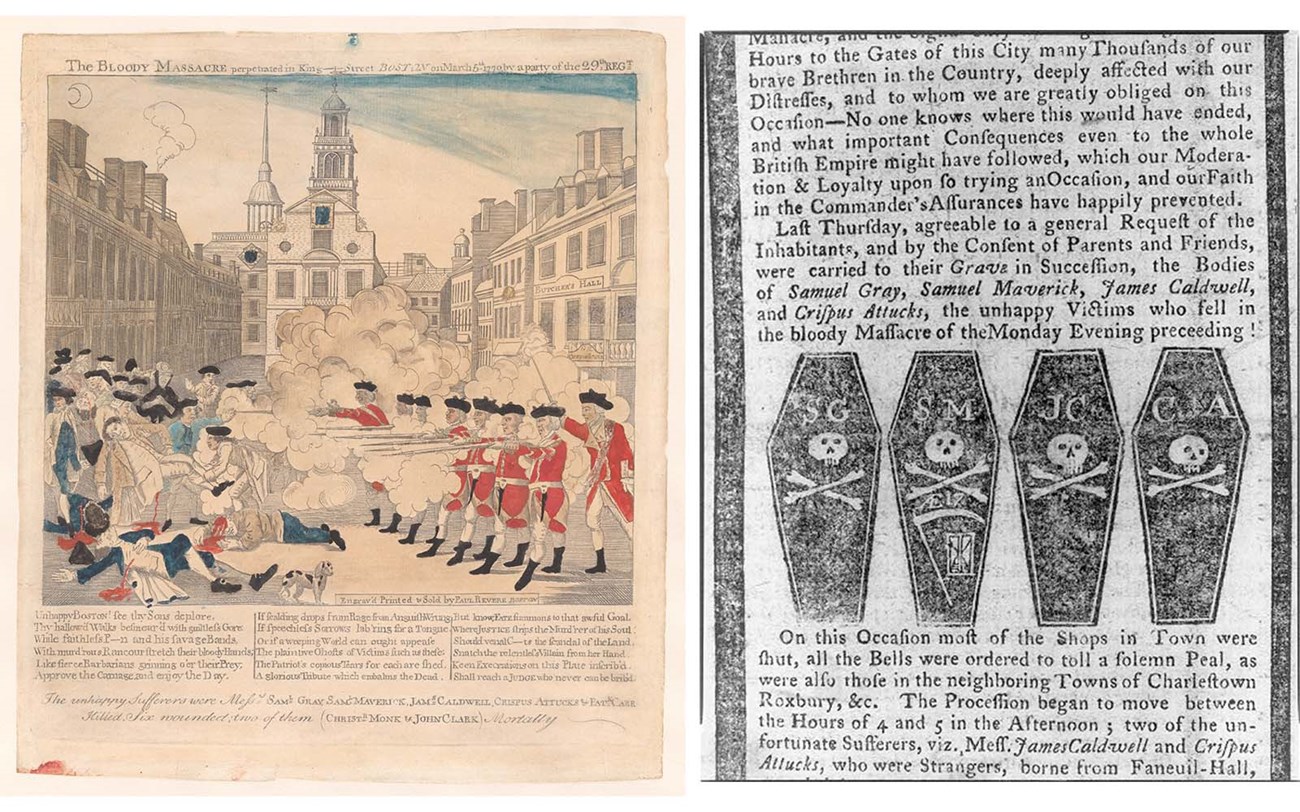 The BLOODY MASSACRE perpetrated in King Street BOSTON on March 5th 1770 by a party of the 29th REGT
BUTCHER'S HALL
Engrav'd Printed & Sold by PAUL REVERE BOSTON
Unhappy BOSTON! see thy Sons deplore,
Thy hallow'd Walks besmear'd with guiltless Gore.
While faithless P—n and his savage Bands,
With murd'rous Rancour stretch their bloody Hands;
Like fierce Barbarians grinning o'er their Prey,
Approve the Carnage, and enjoy the Day.
If scalding drops from Rage from Anguish Wrung,
If speechless Sorrows lab'ring for a Tongue,
Or if a weeping World can ought appease
The plaintive Ghosts of Victims such as these:
The Patriot's copious Tears for each are shed,
A glorious Tribute which embalms the Dead.
But know, FATE summons to that awful Goal,
Where JUSTICE strips the Murd'rer of his Soul:
Should venal C—ts the scandal of the Land,
Snatch the relentless Villain from her Hand,
Keen Execrations on this Plate inscrib'd,
Shall reach a JUDGE who never can be brib'd.
The unhappy Sufferers were Messs SAML GRAY, SAML MAVERICK, JAMS CALDWELL, CRISPUS ATTUCKS & PATK CARR
Killed. Six wounded; two of them (CHRISTR MONK & JOHN CLARK) Mortally
Hours to the Gates of this City many Thouſands of our
brave Brethren in the Country, deeply affected with our
Diſtreſſes, and to whom we are greatly obliged on this
Occaſion—No one knows where this would have ended,
and what important Conſequences even to the whole
Britiſh Empire might have followed, which our Modera-
tion & Loyalty upon ſo trying an Occaſion, and our Faith
in the Commander's Aſſurances have happily prevented.
Laſt Thurſday, agreeable to a general Requeſt of the
Inhabitants, and by the Conſent of Parents and Friends,
were carried to their Grave in Succeſſion, the Bodies
of Samuel Gray, Samuel Maverick, James Caldwell,
and Criſpus Attucks, the unhappy Victims who fell in
the bloody Maſſacre of the Monday Evening preceeding !
SG SM JC CA
On this Occaſion moſt of the Shops in Town were
ſhut, all the Bells were ordered to toll a ſolemn Peal, as
were alſo thoſe in the neighboring Towns of Charleſtown
Roxbury, &c. The Proceſſion began to move between
the Hours of 4 and 5 in the Afternoon ; two of the un-
fortunate Sufferers, viz. Meſſ. James Caldwell and Criſpus
Attucks, who were Strangers, borne from Faneuil-Hall,